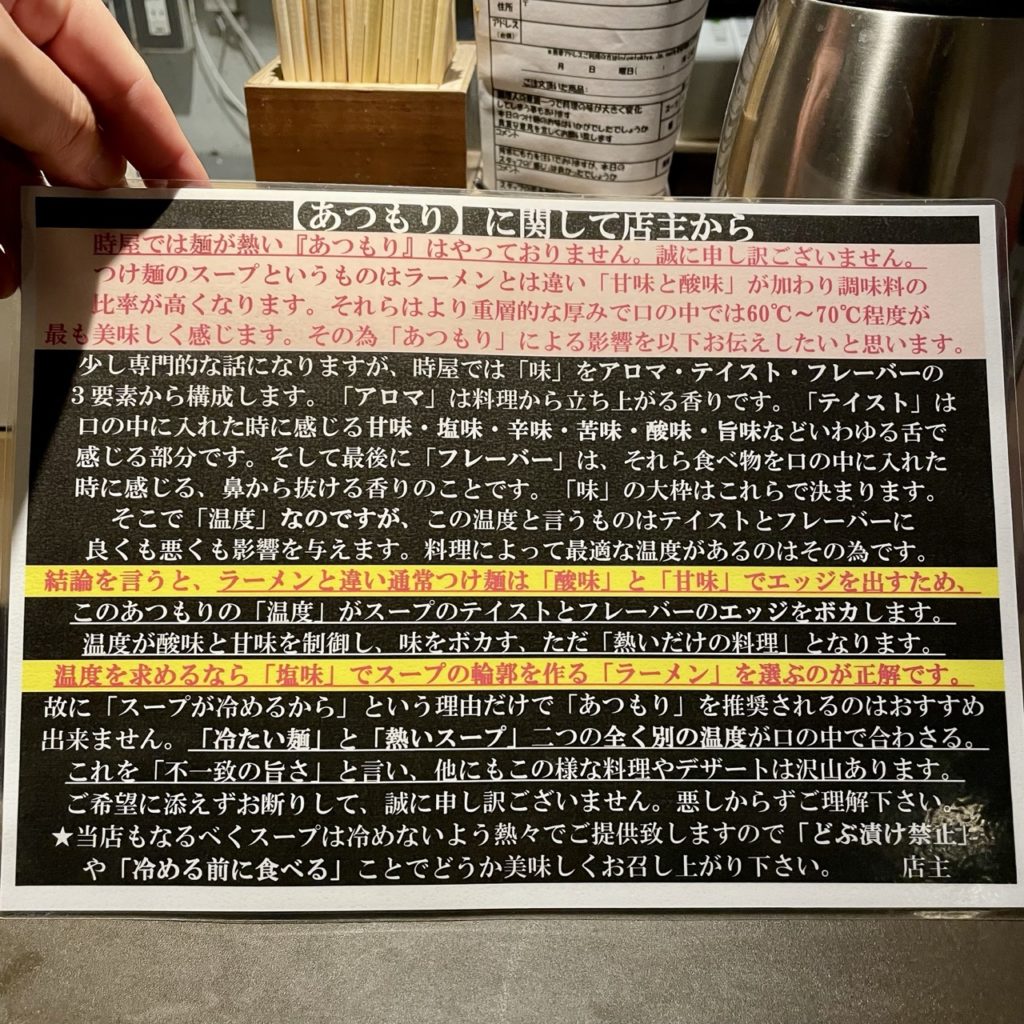 住所
〒
アドレス
月 日 曜日( )
ご注文頂いた商品:
してしまう事もあります
本日のつけ麺のお味はいかがでしたでしょうか
貴重な意見を宜しくお願い致します
コメント
コメント
【あつもり】に関して店主から
時屋では麺が熱い『あつもり』はやっておりません。誠に申し訳ございません。
つけ麺のスープというものはラーメンとは違い「甘味と酸味」が加わり調味料の
比率が高くなります。それらはより重層的な厚みで口の中では60℃〜70℃程度が
最も美味しく感じます。その為「あつもり」による影響を以下お伝えしたいと思います。
少し専門的な話になりますが、時屋では「味」をアロマ・テイスト・フレーバーの
3要素から構成します。「アロマ」は料理から立ち上がる香りです。「テイスト」は
口の中に入れた時に感じる甘味・塩味・辛味・苦味・酸味・旨味などいわゆる舌で
感じる部分です。そして最後に「フレーバー」は、それら食べ物を口の中に入れた
時に感じる、鼻から抜ける香りのことです。「味」の大枠はこれらで決まります。
そこで「温度」なのですが、この温度と言うものはテイストとフレーバーに
良くも悪くも影響を与えます。料理によって最適な温度があるのはその為です。
結論を言うと、ラーメンと違い通常つけ麺は「酸味」と「甘味」でエッジを出すため、
このあつもりの「温度」がスープのテイストとフレーバーのエッジをボカします。
温度が酸味と甘味を制御し、味をボカす、ただ「熱いだけの料理」となります。
温度を求めるなら「塩味」でスープの輪郭を作る「ラーメン」を選ぶのが正解です。
故に「スープが冷めるから」という理由だけで「あつもり」を推奨されるのはおすすめ
出来ません。「冷たい麺」と「熱いスープ」二つの全く別の温度が口の中で合わさる。
これを「不一致の旨さ」と言い、他にもこの様な料理やデザートは沢山あります。
ご希望に添えずお断りして、誠に申し訳ございません。悪しからずご理解下さい。
★当店もなるべくスープは冷めないよう熱々でご提供致しますので「どぶ漬け禁止」
や「冷める前に食べる」ことでどうか美味しくお召し上がり下さい。 店主